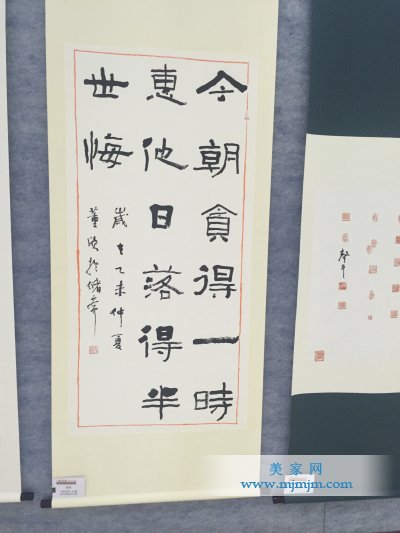 今朝貪得一時
惠他日落得半
世悔
歲在乙未仲夏
聲干
美家网
www.mjmjm.com